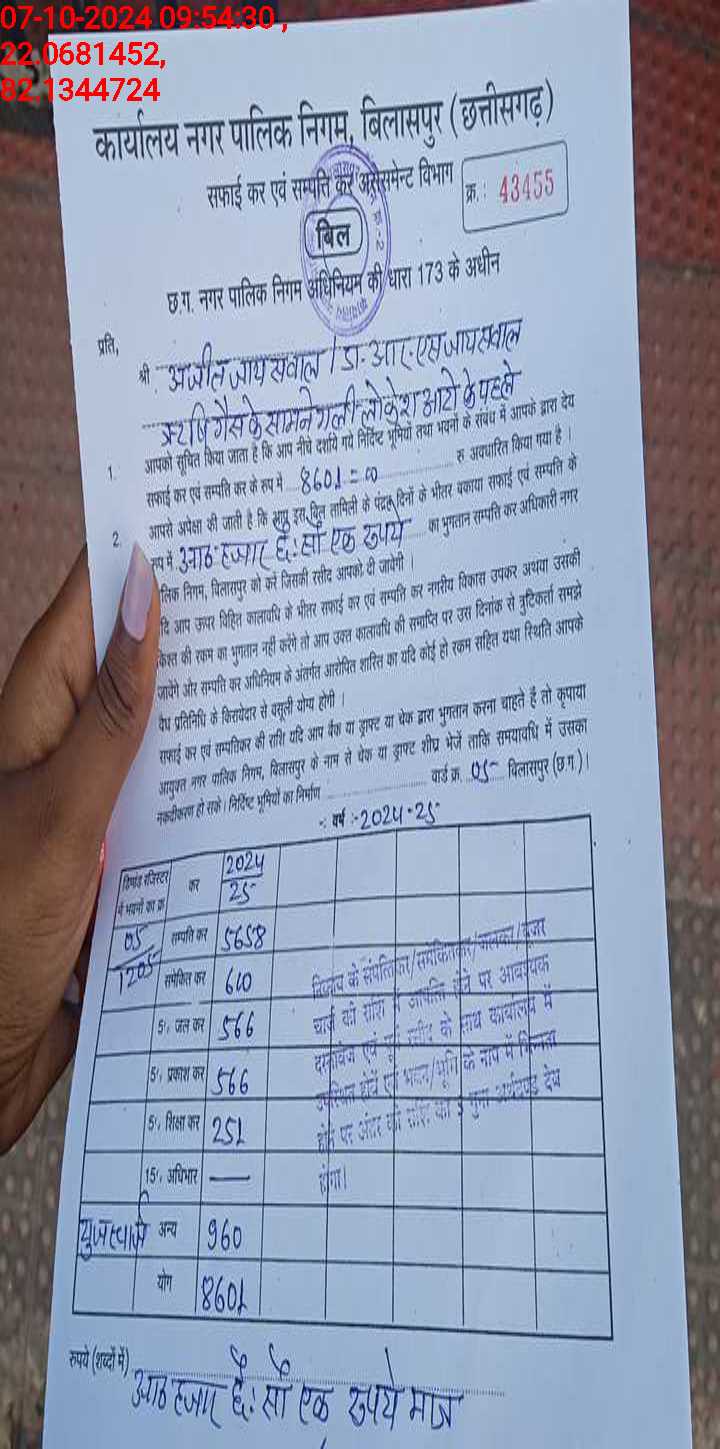 07-10-2024 09:54:30 ,
22.0681452,
82.1344724
कार्यालय नगर पालिक निगम, बिलासपुर (छत्तीसगढ़)
सफाई कर एवं सम्पत्ति कर असेसमेन्ट विभाग
क्र.: 43455
बिल
छ.ग. नगर पालिक निगम अधिनियम की धारा 173 के अधीन
प्रति,
श्री अजीत जायसवाल / डा. आर. एस जायसवाल
ऋषि गैस के सामने गली लोकेश आटो के पहले
1. आपको सूचित किया जाता है कि आप नीचे दर्शाये गये निर्दिष्ट भूमियों तथा भवनों के संबंध में आपके द्वारा देय
सफाई कर एवं सम्पत्ति कर के रूप में 8601=00 रु अवधारित किया गया है।
2. आपसे अपेक्षा की जाती है कि आप इस बिल तामिली के पंद्रह दिनों के भीतर बकाया सफाई एवं सम्पत्ति के
रूप में आठ हजार छः सौ एक रुपये का भुगतान सम्पत्ति कर अधिकारी नगर
लिक निगम, बिलासपुर को करें जिसकी रसीद आपको दी जावेगी।
दि आप ऊपर विहित कालावधि के भीतर सफाई कर एवं सम्पत्ति कर नगरीय विकास उपकर अथवा उसकी
किश्त की रकम का भुगतान नहीं करेंगे तो आप उक्त कालावधि की समाप्ति पर उस दिनांक से त्रुटिकर्ता समझे
जावेंगे और सम्पत्ति कर अधिनियम के अंतर्गत आरोपित शास्ति का यदि कोई हो रकम सहित यथा स्थिति आपके
वैध प्रतिनिधि के किरायेदार से वसूली योग्य होगी।
सफाई कर एवं सम्पत्तिकर की राशि यदि आप बैंक या ड्राफ्ट या चेक द्वारा भुगतान करना चाहते हैं तो कृपाया
आयुक्त नगर पालिक निगम, बिलासपुर के नाम से चेक या ड्राफ्ट शीघ्र भेजें ताकि समयावधि में उसका
नकदीकरण हो सके। निर्दिष्ट भूमियों का निर्माण वार्ड क्र. 05 बिलासपुर (छ.ग.)।
-: वर्ष :-2024-25
डिमांड रजिस्टर में भवनों का क्र कर 2024/25
05/1205 सम्पति कर 5658
समेकित कर 600
5% जल कर 566
5% प्रकाश कर 566
5% शिक्षा कर 251
15% अधिभार —
युजरचार्ज अन्य 960
योग 8601
निकाय के संपत्तिकर/समेकितकर/जलकर/यूजर
चार्ज की राशि में आपत्ति होने पर आवश्यक
दस्तावेज एवं पूर्व रसीद के साथ कार्यालय में
उपस्थित होवें एवं भवन/भूमि के नाप में भिन्नता
होने पर अंतर की राशि का 5 गुना अर्थदण्ड देय
होगा।
रुपये (शब्दों में) आठ हजार छः सौ एक रुपये मात्र